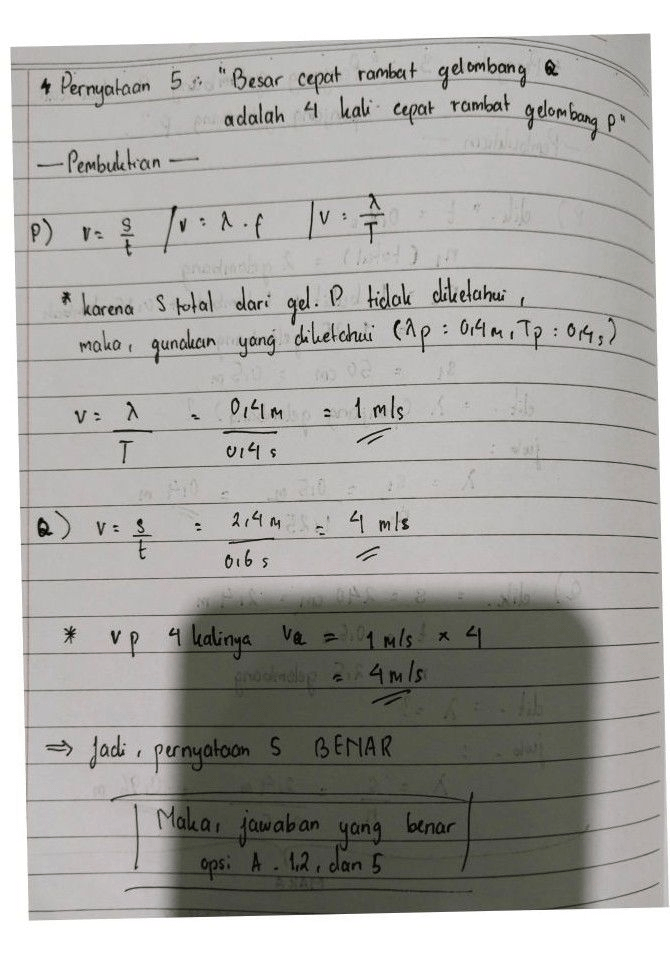 * Pernyataan 5 : "Besar cepat rambat gelombang Q
adalah 4 kali cepat rambat gelombang P"
— Pembuktian —
P) v = s/t / v = λ . f / v = λ/T
* karena S total dari gel. P tidak diketahui,
maka, gunakan yang diketahui (λp = 0,4 m, Tp = 0,4 s)
v = λ/T = 0,4 m/0,4 s = 1 m/s
Q) v = s/t = 2,4 m/0,6 s = 4 m/s
* vp 4 kalinya vQ = 1 m/s × 4
= 4 m/s
⇒ Jadi, pernyataan 5 BENAR
Maka, jawaban yang benar
opsi A. 1,2, dan 5